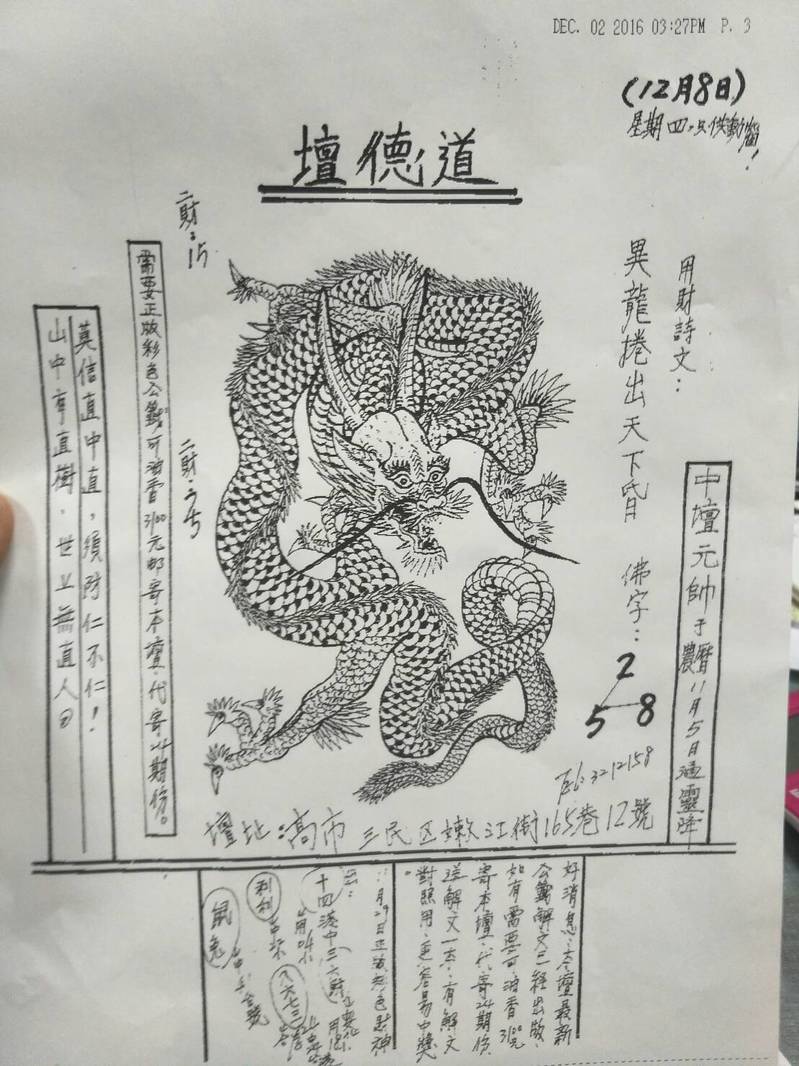 DEC. 02 2016 03:27PM P. 3
(12月8日)
星期四,只供動腦!
道德壇
用財詩文:
異龍捲出天下昏
佛字:
2
5 8
中壇元帥于農曆11月5日通靈降
二財:15
二財:
需要正版彩色公籤可油香3100元邮寄本壇,代寄24期份。
莫信直中直,須防仁不仁!
山中有直樹,世上無直人
Tel:3212158
壇址:高市三民区嫩江街165巷12號
好消息:本壇最新
公籤解文已経出版,
如有需要可油香3100元
寄本壇,代寄24期份,
送解文一本,有解文
對照用,更容易中獎
。
月29日正版彩色財神
十四
鼠兔